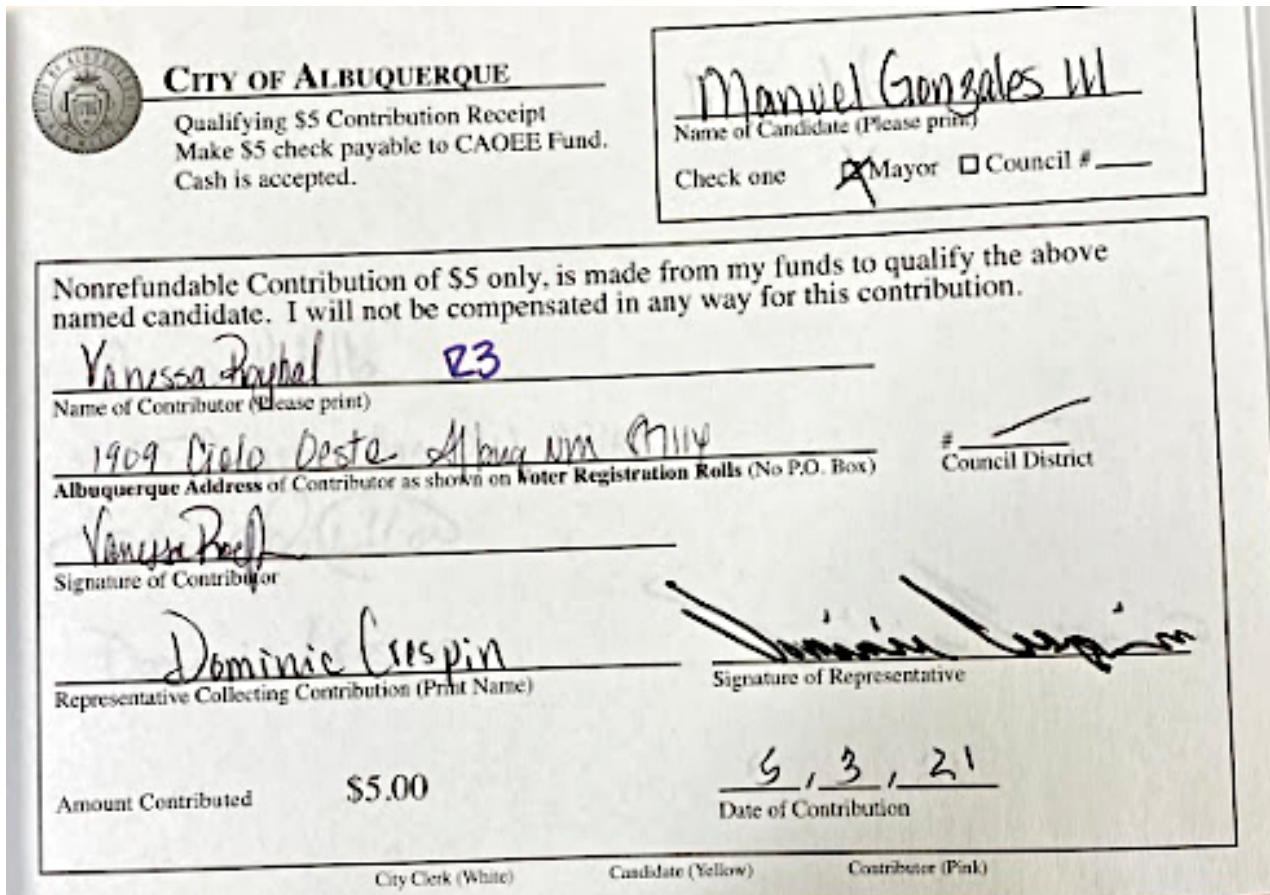 CITY OF ALBUQUERQUE
Qualifying $5 Contribution Receipt
Make $5 check payable to CAOEE Fund.
Cash is accepted.
Manuel Gonzales III
Name of Candidate (Please print)
Check one Mayor Council #
Nonrefundable Contribution of $5 only, is made from my funds to qualify the above
named candidate. I will not be compensated in any way for this contribution.
Vanessa Roybal R3
Name of Contributor (Please print)
1909 Cielo Oeste Albuq NM
Albuquerque Address of Contributor as shown on Voter Registration Rolls (No P.O. Box)
#
Council District
Vanessa
Signature of Contributor
Dominic Crespin
Representative Collecting Contribution (Print Name)
Dominic Crespin
Signature of Representative
Amount Contributed $5.00
5, 3, 21
Date of Contribution
City Clerk (White) Candidate (Yellow) Contributor (Pink)